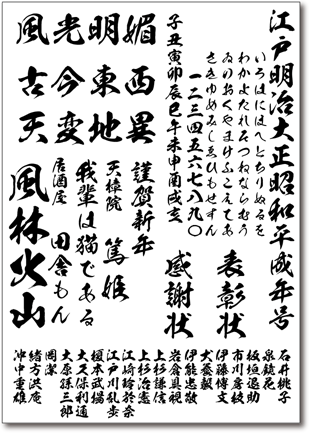 江戸明治大正昭和平成年号
いろはにほへとちりぬるを
わかよたれそつねならむう
ゐのおくやまけふこえてあ
さきゆめみしゑひもせすん
子丑寅卯辰巳午未申酉戌亥
一二三四五六七八九〇
風光明媚
古今東西
天変地異
表彰状
感謝状
謹賀新年
天璋院 篤姫
我輩は猫である
居酒屋 田舎もん
風林火山
石井桃子
泉鏡花
板垣退助
市川房枝
伊藤博文
犬養毅
伊能忠敬
岩倉具視
上杉謙信
上杉治憲
江崎玲於奈
江戸川乱歩
榎本武揚
大久保利通
大原孫三郎
岡潔
緒方洪庵
沖中重雄